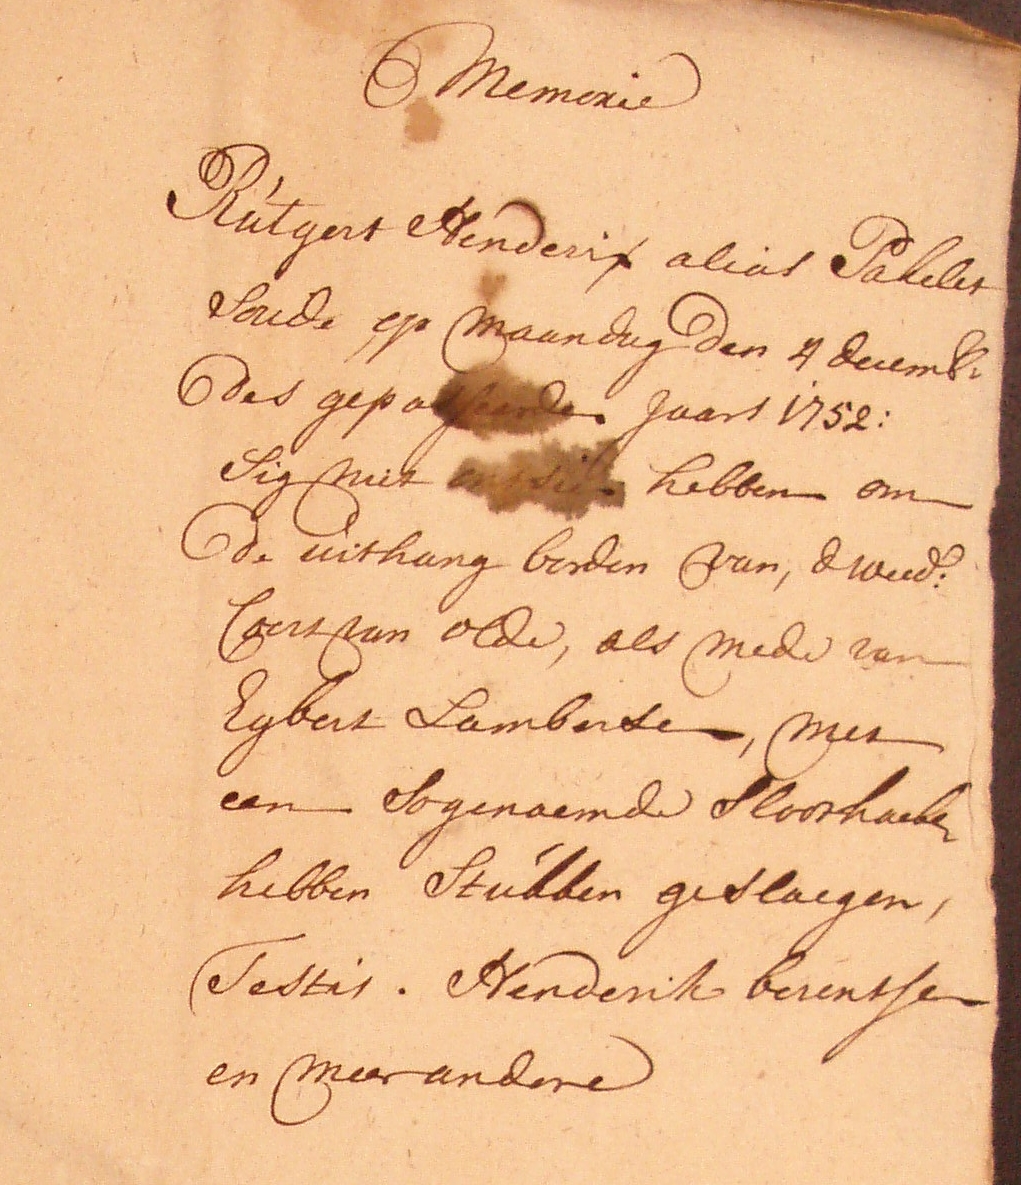 Memorie
Rútgert Henderix alias Pakelet
Soude op maandag den 4 decembr
des gepasseerde Jaars 1752:
Sig niet ontsien hebben om
de uithang borden van, d weed:
Coert van olde, als mede van
Egbert Lambertse, met
een Sogenaemde Sloothaeke
hebben Stúkken geslaegen,
Testis. Henderik berentsen
en meer andere